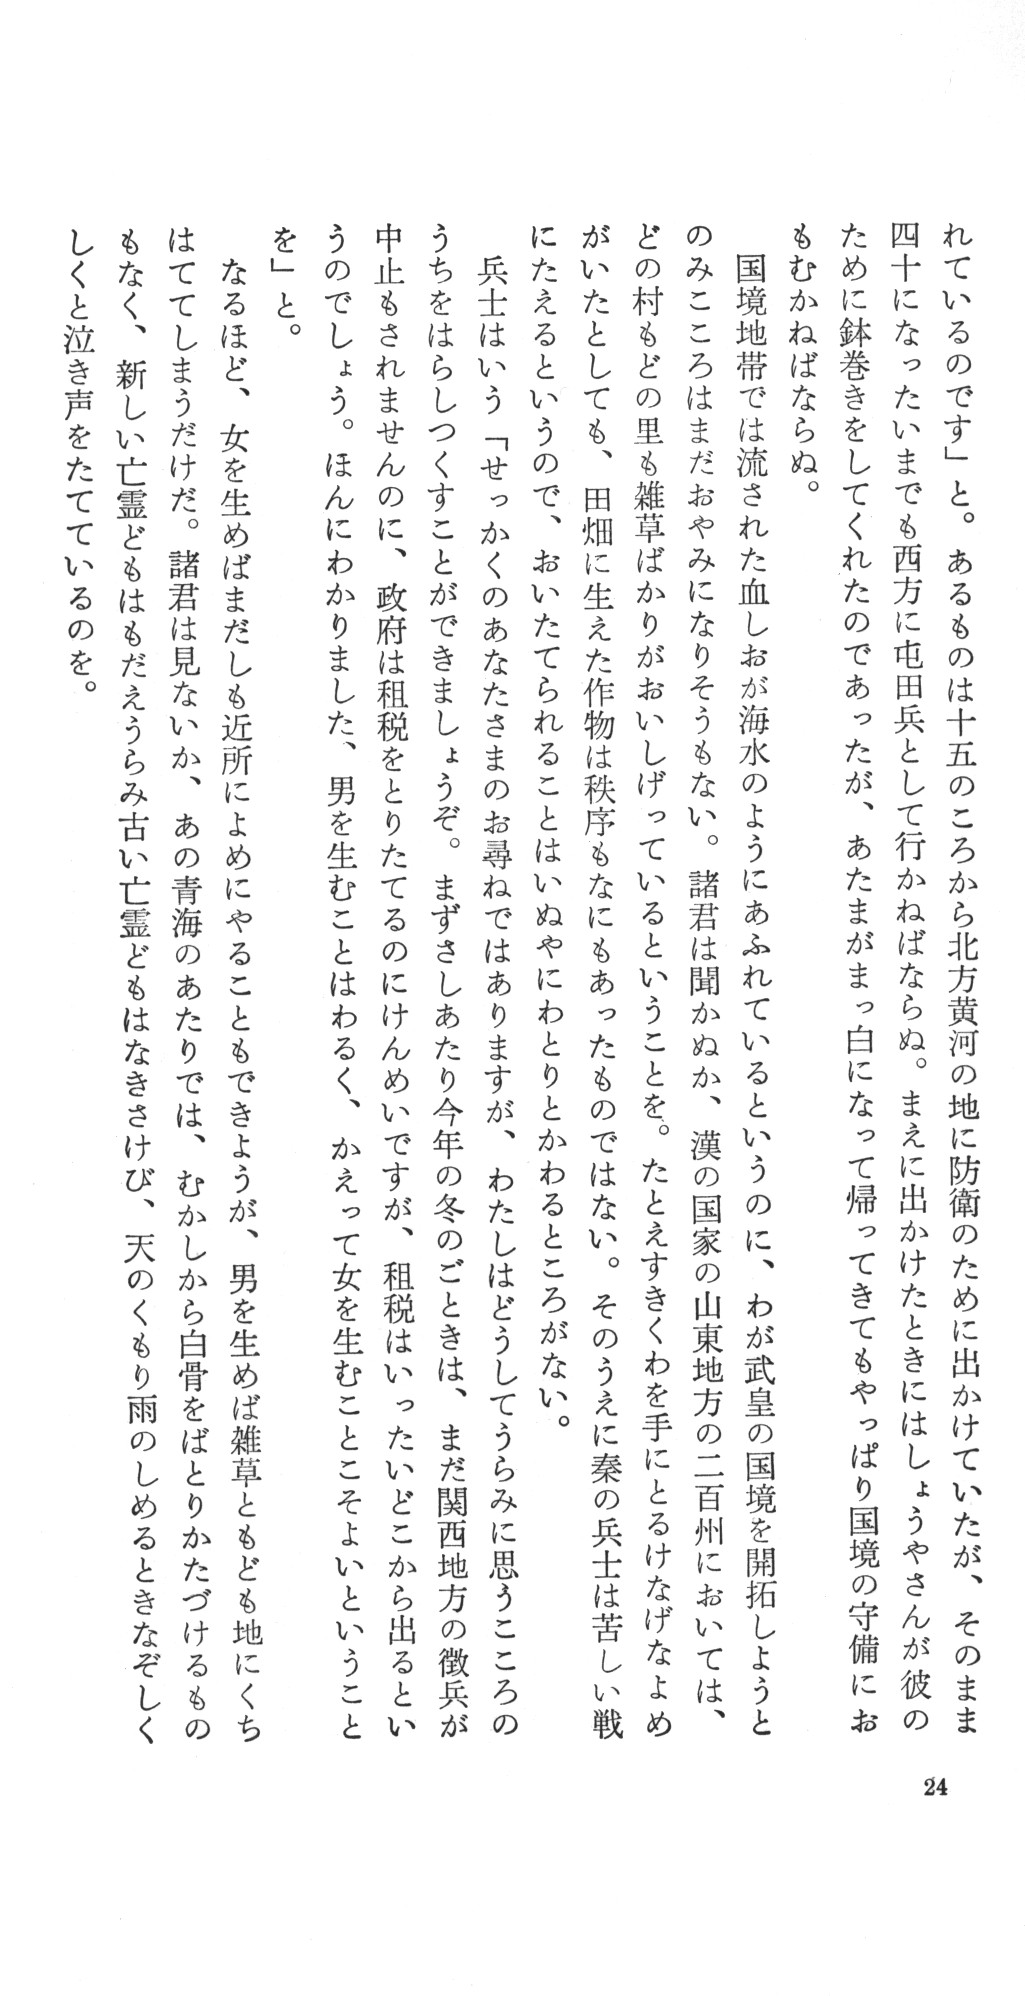 れているのです」と。あるものは十五のころから北方黄河の地に防衛のために出かけていたが、そのまま
四十になったいまでも西方に屯田兵として行かねばならぬ。まえに出かけたときにはしょうやさんが彼の
ために鉢巻きをしてくれたのであったが、あたまがまっ白になって帰ってきてもやっぱり国境の守備にお
もむかねばならぬ。
国境地帯では流された血しおが海水のようにあふれているというのに、わが武皇の国境を開拓しようと
のみこころはまだおやみになりそうもない。諸君は聞かぬか、漢の国家の山東地方の二百州においては、
どの村もどの里も雑草ばかりがおいしげっているということを。たとえすきくわを手にとるけなげなよめ
がいたとしても、田畑に生えた作物は秩序もなにもあったものではない。そのうえに秦の兵士は苦しい戦
にたえるというので、おいたてられることはいぬやにわとりとかわるところがない。
兵士はいう「せっかくのあなたさまのお尋ねではありますが、わたしはどうしてうらみに思うこころの
うちをはらしつくすことができましょうぞ。まずさしあたり今年の冬のごときは、まだ関西地方の徴兵が
中止もされませんのに、政府は租税をとりたてるのにけんめいですが、租税はいったいどこから出るとい
うのでしょう。ほんにわかりました、男を生むことはわるく、かえって女を生むことこそよいということ
を」と。
なるほど、女を生めばまだしも近所によめにやることもできようが、男を生めば雑草ともども地にくち
はててしまうだけだ。諸君は見ないか、あの青海のあたりでは、むかしから白骨をばとりかたづけるもの
もなく、新しい亡霊どもはもだえうらみ古い亡霊どもはなきさけび、天のくもり雨のしめるときなぞしく
しくと泣き声をたてているのを。
24